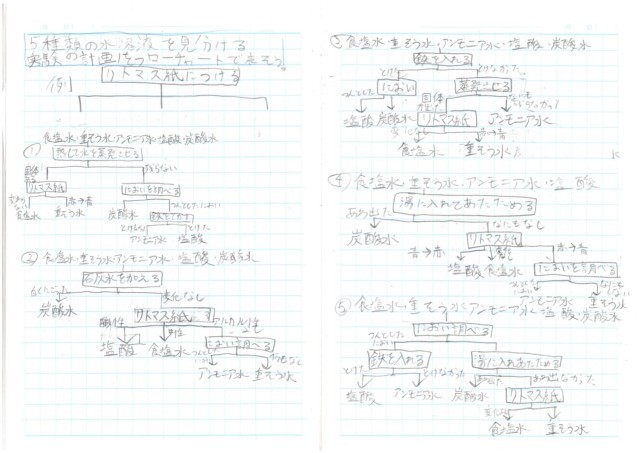 5種類の水溶液を見分ける
実験の計画をフローチャートで立そう。
(例) リトマス紙につける
食塩水・重そう水・アンモニア水・塩酸・炭酸水
① 熱して水を蒸発させる
固体 残らない
リトマス紙 においを調べる
赤→青 つんとしたにおい
食塩水 重そう水 炭酸水 鉄をとかす
とけた
アンモニア水 塩酸
② 食塩水・重そう水・アンモニア水・塩酸・炭酸水
石灰水をかえる
白くにごった 変化なし
炭酸水 リトマス紙にする
酸性 中性 アルカリ性
塩酸 食塩水 におい調べる
つんと においなし
アンモニア水 重そう水
③ 食塩水・重そう水・アンモニア水・塩酸・炭酸水
鉄を入れる
とけた とけなかった
におい 蒸発させる
つんとした 固体 なにも
塩酸 炭酸水 リトマス紙 アンモニア水
赤→青
食塩水 重そう水
④ 食塩水・重そう水・アンモニア水・塩酸
湯に入れてあたためる
あわ出た なにもなし
炭酸水 リトマス紙
青→赤 赤→青
塩酸 食塩水 においを調べる
アンモニア水 重そう水
⑤ 食塩水・重そう水・アンモニア水・塩酸・炭酸水
つんとした におい調べる
鉄を入れる 湯に入れあたためる
とけた とけなかった あわ出た あわ出なかった
塩酸 アンモニア水 炭酸水 リトマス紙
食塩水 重そう水